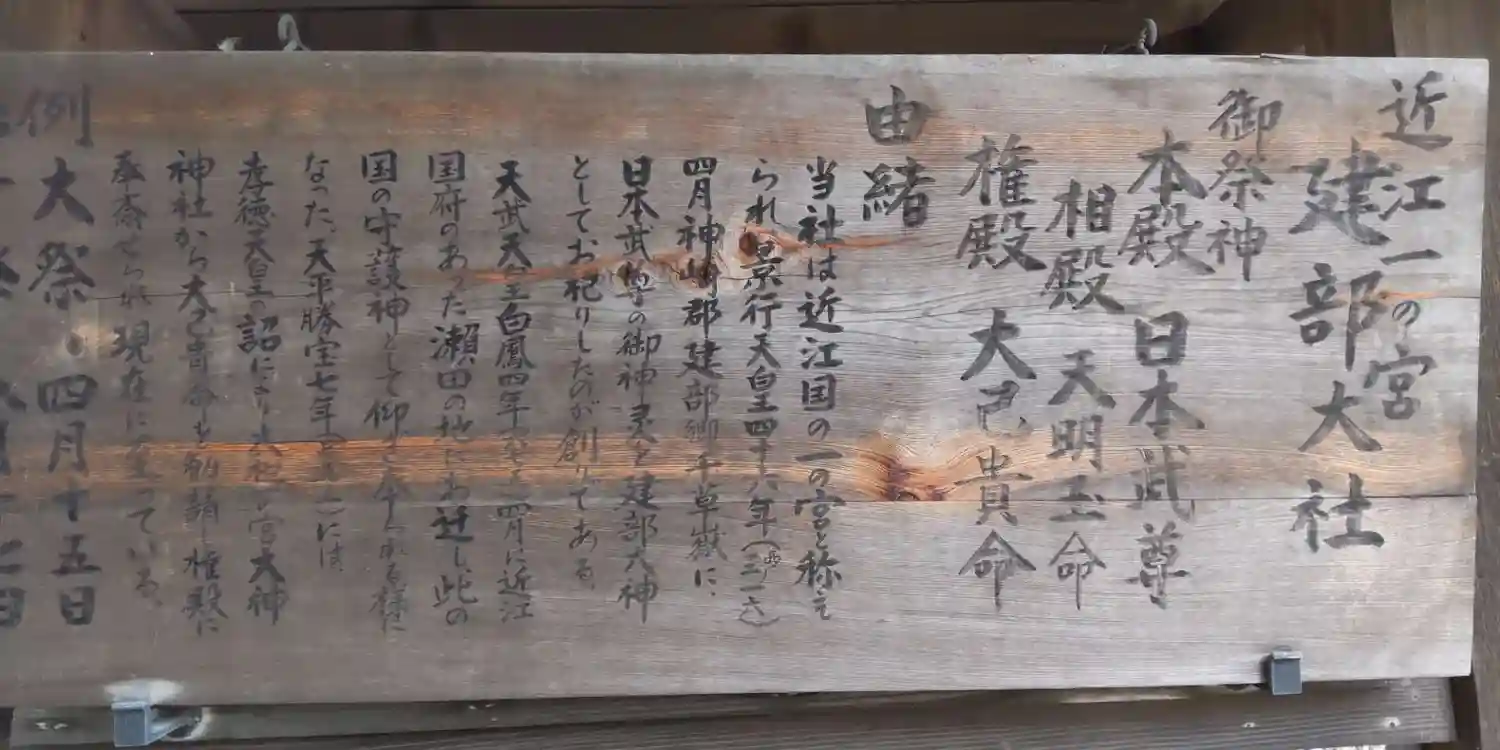 近江一の宮
建部大社
御祭神
本殿 日本武尊
相殿 天明玉命
権殿 大己貴命
由緒
当社は近江国の一の宮と称え
られ、景行天皇四十六年(西一一六)
四月神崎郡建部郷千草嶽に
日本武尊の御神霊を建部大神
としてお祀りしたのが創りである。
天武天皇白鳳四年 四月に近江
国府のあった瀬田の地にお迁し此の
国の守護神として仰がれる様に
なった。天平勝宝七年 には
孝徳天皇の詔により大和 宮大神
神社から大己貴命を勧請し権殿に
奉斎せられ現在に至っている。
例大祭・四月十五日